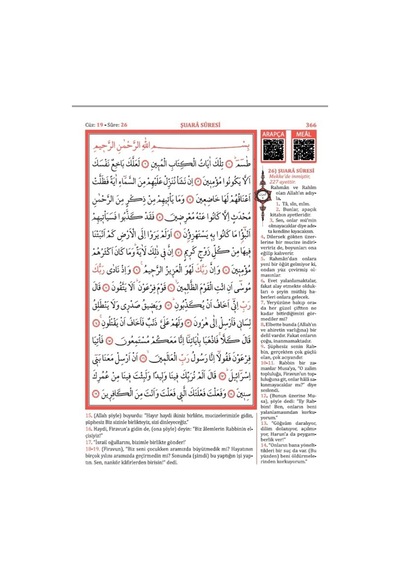 Cüz: 19 • Sûre: 26
ŞUARÂ SÛRESİ
366
بِسْمِ اللّٰهِ الرَّحْمٰنِ الرَّحِيمِ
طٰسٓمٓ ﴿١﴾ تِلْكَ اٰيَاتُ الْكِتَابِ الْمُبِينِ ﴿٢﴾ لَعَلَّكَ بَاخِعٌ نَفْسَكَ
اَلَّا يَكُونُوا مُؤْمِنِينَ ﴿٣﴾ اِنْ نَشَأْ نُنَزِّلْ عَلَيْهِمْ مِنَ السَّمَٓاءِ اٰيَةً فَظَلَّتْ
اَعْنَاقُهُمْ لَهَا خَاضِعِينَ ﴿٤﴾ وَمَا يَأْتِيهِمْ مِنْ ذِكْرٍ مِنَ الرَّحْمٰنِ
مُحْدَثٍ اِلَّا كَانُوا عَنْهُ مُعْرِضِينَ ﴿٥﴾ فَقَدْ كَذَّبُوا فَسَيَأْتِيهِمْ
اَنْبٰٓؤُ۬ا مَا كَانُوا بِهِ يَسْتَهْزِؤُ۫نَ ﴿٦﴾ اَوَلَمْ يَرَوْا اِلَى الْاَرْضِ كَمْ اَنْبَتْنَا
فِيهَا مِنْ كُلِّ زَوْجٍ كَرِيمٍ ﴿٧﴾ اِنَّ فِي ذٰلِكَ لَاٰيَةً وَمَا كَانَ اَكْثَرُهُمْ
مُؤْمِنِينَ ﴿٨﴾ وَاِنَّ رَبَّكَ لَهُوَ الْعَزِيزُ الرَّحِيمُ ﴿٩﴾ وَاِذْ نَادٰى رَبُّكَ
مُوسٰٓى اَنِ ائْتِ الْقَوْمَ الظَّالِمِينَ ﴿١٠﴾ قَوْمَ فِرْعَوْنَ اَلَا يَتَّقُونَ ﴿١١﴾ قَالَ
رَبِّ اِنِّٓي اَخَافُ اَنْ يُكَذِّبُونِ ﴿١٢﴾ وَيَضِيقُ صَدْرِي وَلَا يَنْطَلِقُ
لِسَانِي فَاَرْسِلْ اِلٰى هٰرُونَ ﴿١٣﴾ وَلَهُمْ عَلَيَّ ذَنْبٌ فَاَخَافُ اَنْ يَقْتُلُونِ ﴿١٤﴾
قَالَ كَلَّا فَاذْهَبَا بِاٰيَاتِنَٓا اِنَّا مَعَكُمْ مُسْتَمِعُونَ ﴿١٥﴾ فَأْتِيَا
فِرْعَوْنَ فَقُولَٓا اِنَّا رَسُولُ رَبِّ الْعَالَمِينَ ﴿١٦﴾ اَنْ اَرْسِلْ مَعَنَا بَنِٓي
اِسْرَٓائِيلَ ﴿١٧﴾ قَالَ اَلَمْ نُرَبِّكَ فِينَا وَلِيدًا وَلَبِثْتَ فِينَا مِنْ عُمُرِكَ
سِنِينَ ﴿١٨﴾ وَفَعَلْتَ فَعْلَتَكَ الَّتِي فَعَلْتَ وَاَنْتَ مِنَ الْكَافِرِينَ ﴿١٩﴾
ARAPÇA MEÂL
26) ŞUARÂ SÛRESİ
Mekke'de inmiştir,
227 ayettir.
Rahmân ve Rahîm
olan Allah'ın adıy-
la.
1. Tâ, sîn, mîm.
2. Bunlar, apaçık
kitabın ayetleridir.
3. Sen, onlar mü'min
olmayacaklar diye ade-
ta kendine kıyacaksın.
4. Dilersek gökten üzer-
lerine bir mucize indiri-
veririz de, boyunları ona
eğilip kalıverir.
5. Rahmân'dan onlara
yeni bir öğüt gelmiyor ki,
ondan yüz çevirmiş ol-
masınlar
6. Evet yalanlamaktalar,
fakat alay etmekte olduk-
ları o şeyin müthiş ha-
berleri onlara gelecek.
7. Yeryüzüne bakıp ora-
da her güzel çiftten ne
kadar bitirdiğimizi gör-
mediler mi?
8. Elbette bunda (Allah'ın
ve ahiretin varlığına) bir
delil vardır. Fakat onların
çoğu, inanmamaktadır.
9. Şüphesiz senin Rab-
bin, gerçekten çok güçlü
olan, çok acıyandır.
10-11. Rabbin bir za-
manlar Musa'ya, "O zalim
topluluğa, Firavun'un top-
luluğuna git, onlar hâlâ sa-
kınmayacaklar mı?" diye
seslendi.
12. (Bunun üzerine Mu-
sa), şöyle dedi: "Ey Rab-
bim! Ben, onların beni
yalanlamasından korku-
yorum."
13. "Göğsüm daralıyor,
dilim dolanıyor, açılmı-
yor; Harun'a da peygam-
berlik ver!"
14. "Onların bana yönelt-
tikleri bir suç da var. (Bu
yüzden) beni öldürmele-
rinden korkuyorum."
15. (Allah şöyle) buyurdu: "Hayır haydi ikiniz birlikte, mucizelerimizle gidin,
şüphesiz Biz sizinle birlikteyiz, sizi dinleyeceğiz."
16. Haydi, Firavun'a gidin de, (ona şöyle) deyin: "Biz âlemlerin Rabbinin el-
çisiyiz!"
17. "İsrail oğullarını, bizimle birlikte gönder!"
18-19. (Firavun), "Biz seni çocukken aramızda büyütmedik mi? Hayatının
birçok yılını aramızda geçirmedin mi? Sonunda (şimdi) bu yaptığın işi yap-
tın. Sen, nankör kâfirlerden birisin!" dedi.